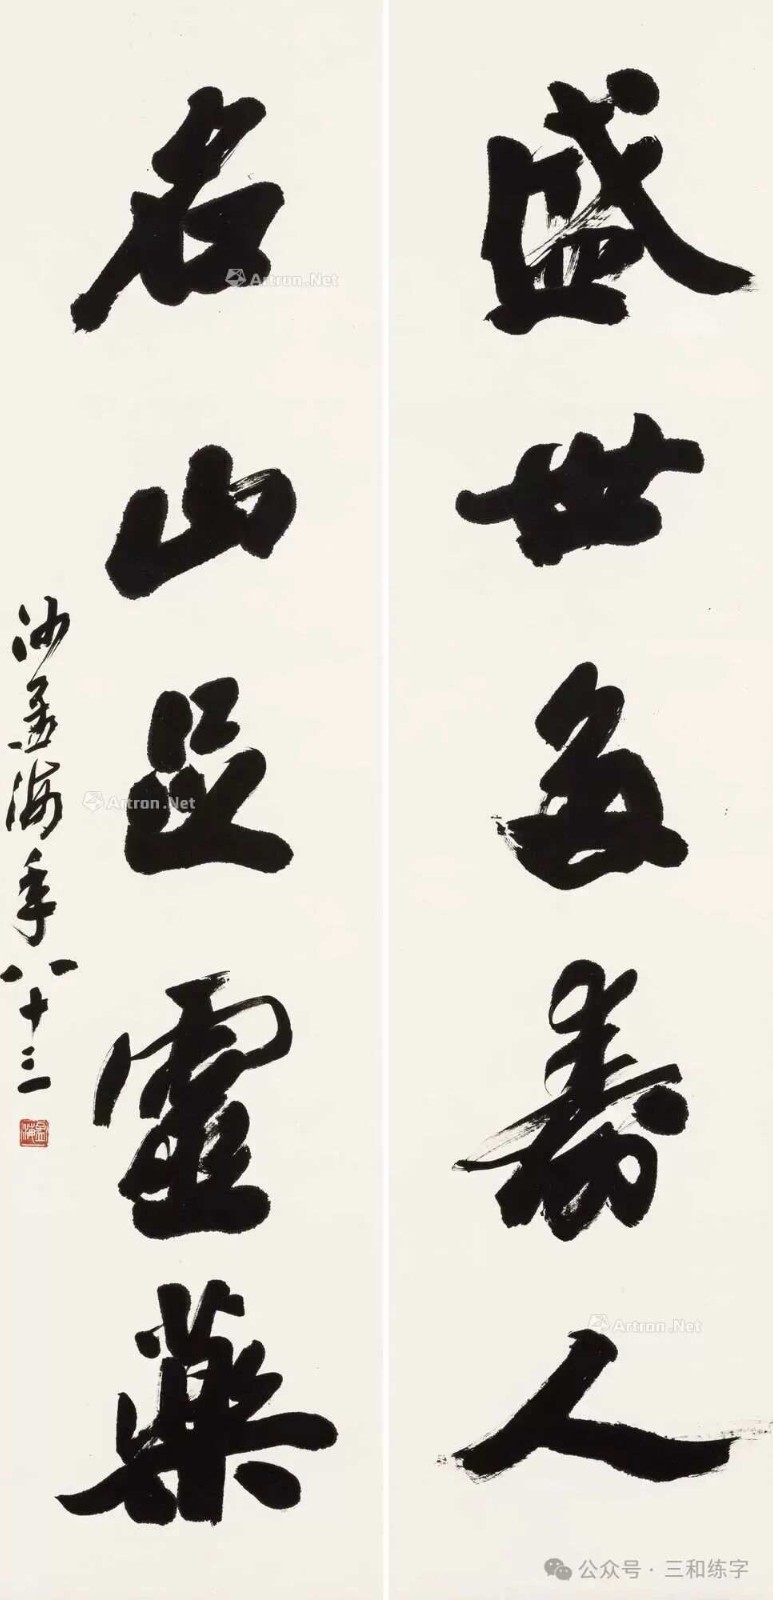 盛世多壽人
名山足靈藥
沙孟海年八十三
孟海
Artron.Net
Artron.Net
Artron.Net
公众号·三和练字